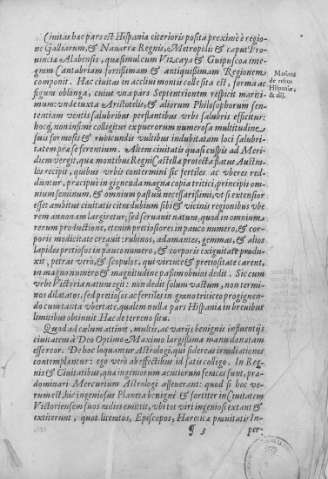 Civitas hæc pars est Hispaniæ citerioris posita proxime è regio-
ne Galliarum, & Navarræ Regnis, Metropolis & caput Pro-
vinciæ Alabensis, quæ simul cum Vizcaya & Guipuscoa inte-
gram Cantabriam fortissimam & antiquissimam Regionem
componit. Hæc civitas in acclivi montis colle sita est, forma
figura oblonga, cuius una pars Septentrionem respicit mariti-
mum: unde iuxta Aristotelis, & aliorum Philosophorum sen-
tentiam ventis salubribus perflantibus urbs salubris efficitur:
hocq; non infimè colligitur ex puerorum numerosa multitudine
qui formosos & rubicundos vultus indubitatam loci salubri-
tatem præ se ferentium. Altera civitatis quasi cuspis ad Meri-
diem vergit, qua montibus Regni Castellæ protecta flatus Austri-
nos recipit, quibus urbis contermini sic fertiles ac uberes red-
duntur, præcipuè in gignenda magna copia tritici, principio om-
nium seminum, & omnium pastui necessarissimi, ut sit extensior
esset ambitus civitatis citer dubium sibi & vicinis regionibus ube-
rem annonam largiretur, sed servavit natura, quod in omnium
rerum productione, etenim pretiosiores in pauco numero, & cor-
poris modicitate creavit: rubinos, adamantes, gemmas, & alios
lapides pretiosos in pauco numero, & corporis exiguitate produ-
xit, petras verò, & scopulos, qui virtute & pretiositate carent,
in magno numero & magnitudine passim obvios dedit. Sic cum
urbe Victoria natura egit: non dedit solum vastum, non termi-
nos dilatatos, sed pretiosos ac fertiles in gignendo
cum tanta ubertate, qualem nulla pars Hispaniæ in brevibus
limitibus obtinuit. Hæc de terreno situ.
Quod ad cælum attinet, multis, ac varijs benignis influentijs
civitatem à Deo Optimo Maximo largissima manu donatam
assero. De hoc loquantur Astrologi, qui sidereas
contemplantur: ego verò ab effectibus id satis colligo. In Reg-
nis & Civitatibus, quæ ingeniorum acutiorum feraces sunt, præ-
dominari Mercurium Astrologi asseverant: quod si hoc ve-
rum est, hic ingeniosus Planeta benignè & fortiter in Civitatem
Victoriensem suos radios emittit, ubi tot viri ingeniosi extant &
extiterunt, quot licentos, Episcopos, Hæreticæ pravitatis In-
¶ 5 per-
Hispaniæ,